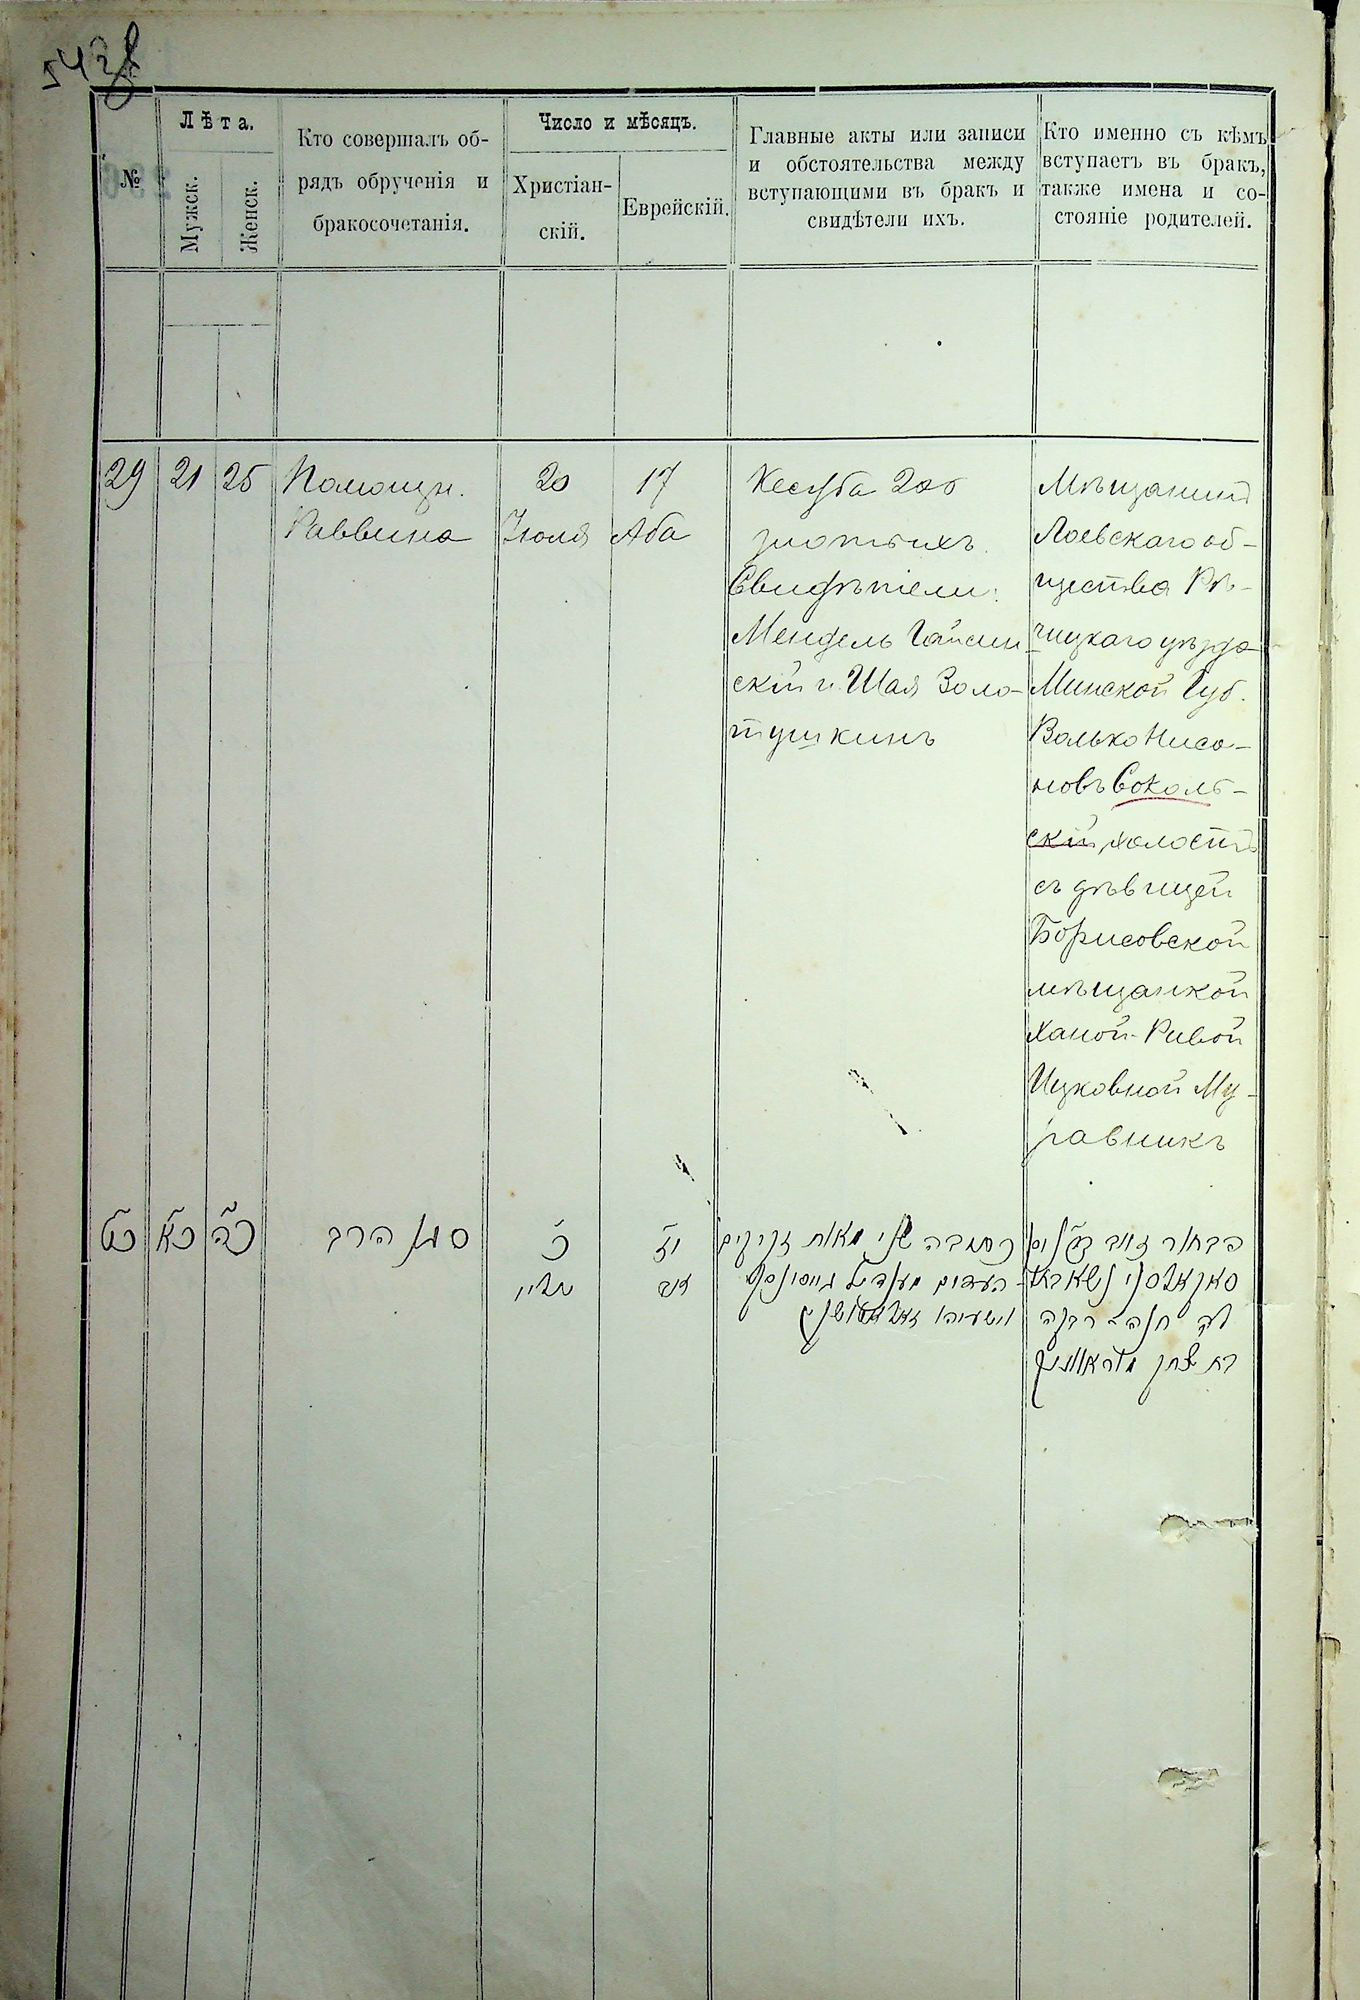 543
№
Лѣта.
Мужск.
Женск.
Кто совершалъ об-
рядъ обрученія и
бракосочетанія.
Число и мѣсяцъ.
Христіан-
скій.
Еврейскій.
Главные акты или записи
и обстоятельства между
вступающими въ бракъ и
свидѣтели ихъ.
Кто именно съ кѣмъ
вступаетъ въ бракъ,
также имена и со-
стояніе родителей.
29
21
25
Помощн.
Раввина
20
Іюля
17
Аба
Кесуба 200
злотыхъ.
Свидѣтели:
Мендель Гайсин
скій и Шая Золо-
тушкинъ
Мѣщанинъ
Лоевскаго об-
щества Рѣ-
чицкаго уѣзда
Минской Губ.
Волько Нисо-
новъ Соколь-
скій, холостъ
съ дѣвицей
Борисовской
мѣщанкой
Ханой-Ривой
Ицковной Му-
равникъ
כט
כא
כה
סגן הרב
כ
יולי
יז
אב
כתובה שני מאות זקוקים
העדים מענדיל גייסינסקי
וישעיהו
הבחור זוו׳ ב׳׳ר ניסן
סאקאלסקי נשא
לו׳ חנה רבקה
בת יצחק מוראווניק